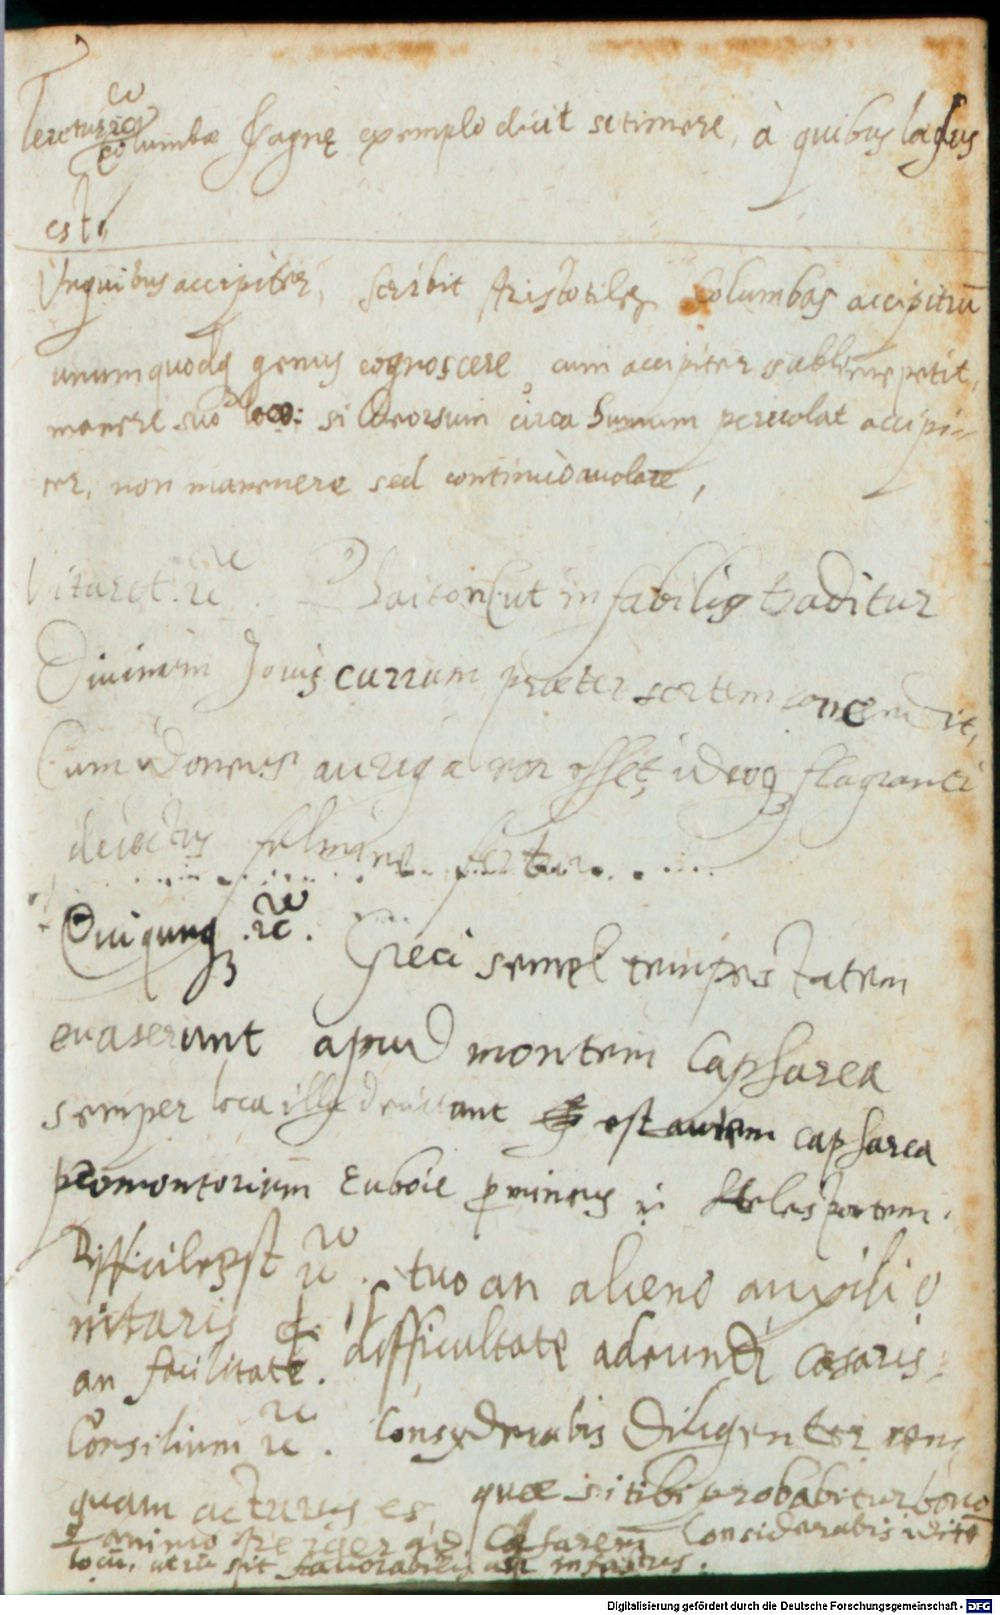 columbæ exemplo dicit se timere, à quibus læsus
est.
Unguibus accipiter, Scribit Aristotiles Columbas accipitrū
unumquodq genus cognoscere, cum accipiter sublime petit,
manere suo loco: si deorsum circa humum pervolat accipi-
ter, non manere sed continuo avolare,
Vitaret. ꝛc. Phaiton ut in fabilis traditur
Divinum Jovis currum præter sortem conscendit,
Cum idoneus auriga non esset, ideoq flagranti
deiectus fulmine fertur.
Quicunq ꝛc. Greci semel tempestatem
evaserunt apud montem Capharea
semper loca illa devitant est autem capharea
promontorium Euboie
Difficile est ꝛc. tuo an alieno auxilio
nitaris
an facilitate. difficultate adeundi Cæsaris.
Consilium ꝛc. Consyderabis Diligenter rem
quam acturus es, quæ si tibi probabitur bono
animo Cæsarem Considerabis
locū, utrū sit favorabilis
Digitalisierung gefördert durch die Deutsche Forschungsgemeinschaft - DFG